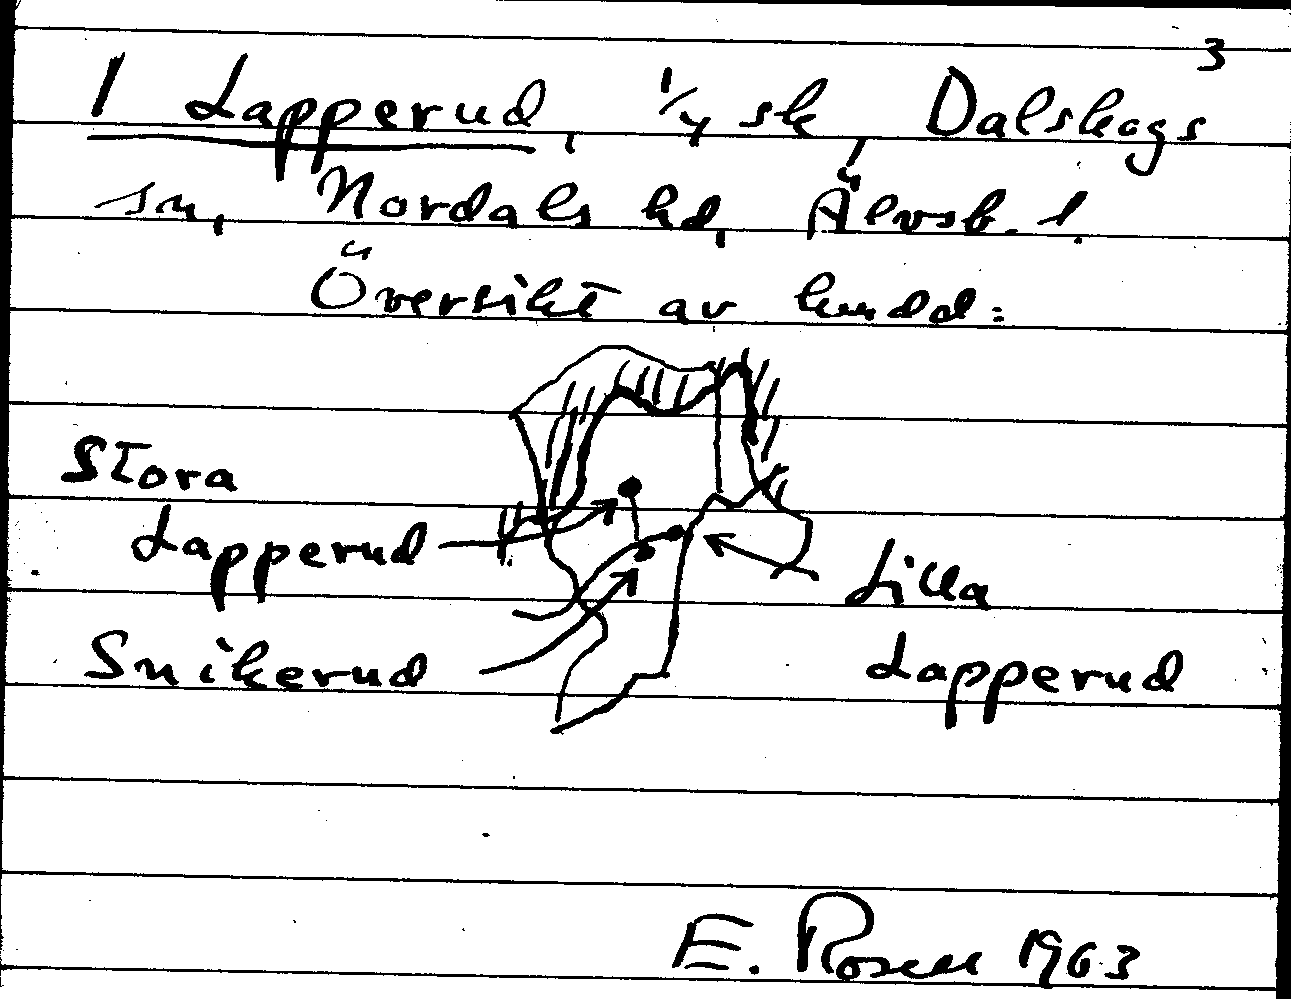 3
1 Lapperud, 1/4 sk, Dalskogs
sn, Nordals hd, Älvsb. l.
Översikt av hundd:
Stora
Lapperud
Snikerud
Lilla
Lapperud
E. Rosell 1963